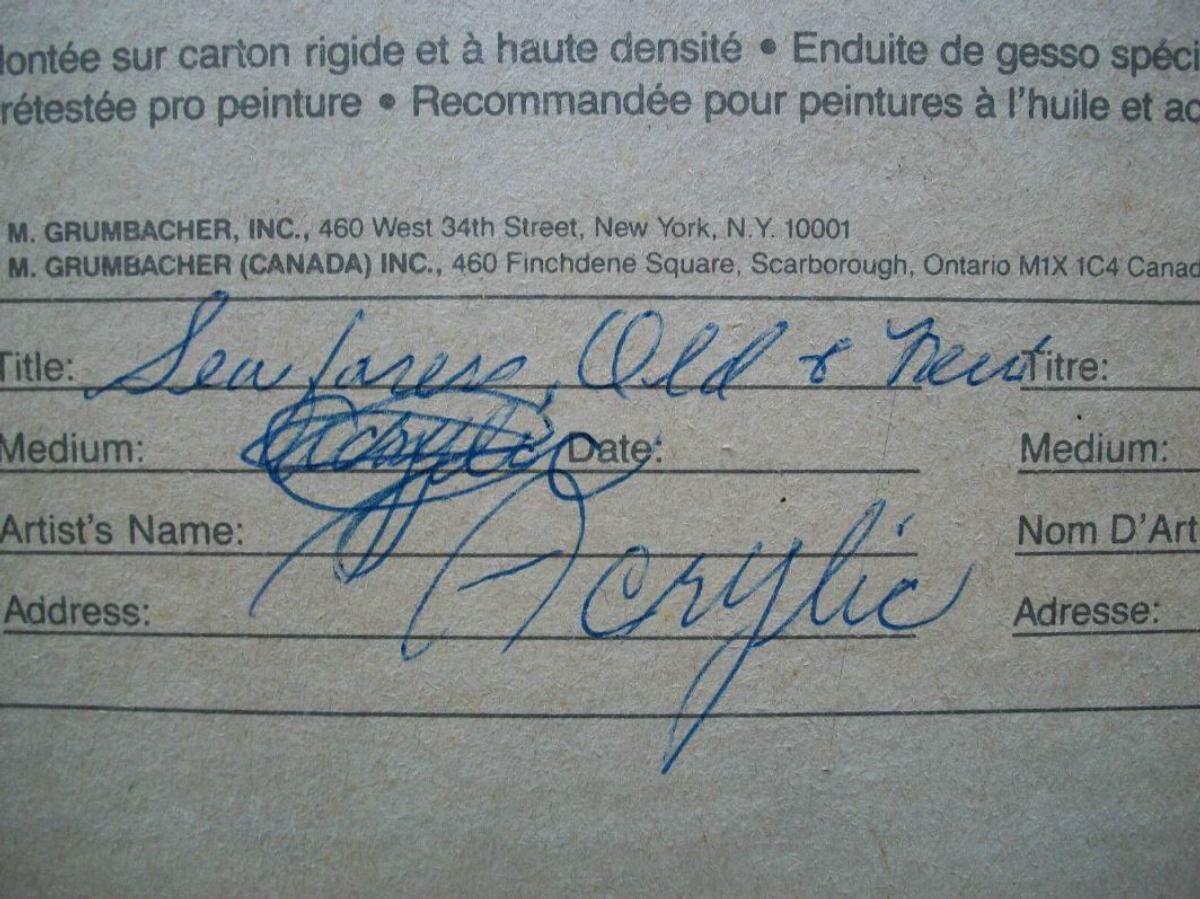 lontée sur carton rigide et à haute densité • Enduite de gesso spéci
rétestée pro peinture • Recommandée pour peintures à l'huile et ac
M. GRUMBACHER, INC., 460 West 34th Street, New York, N.Y. 10001
M. GRUMBACHER (CANADA) INC., 460 Finchdene Square, Scarborough, Ontario M1X 1C4 Canad
Title: Seafarers, Old & New Titre:
Medium: Acrylic Date: Medium:
Artist's Name: Nom D'Art
Acrylic
Address: Adresse: